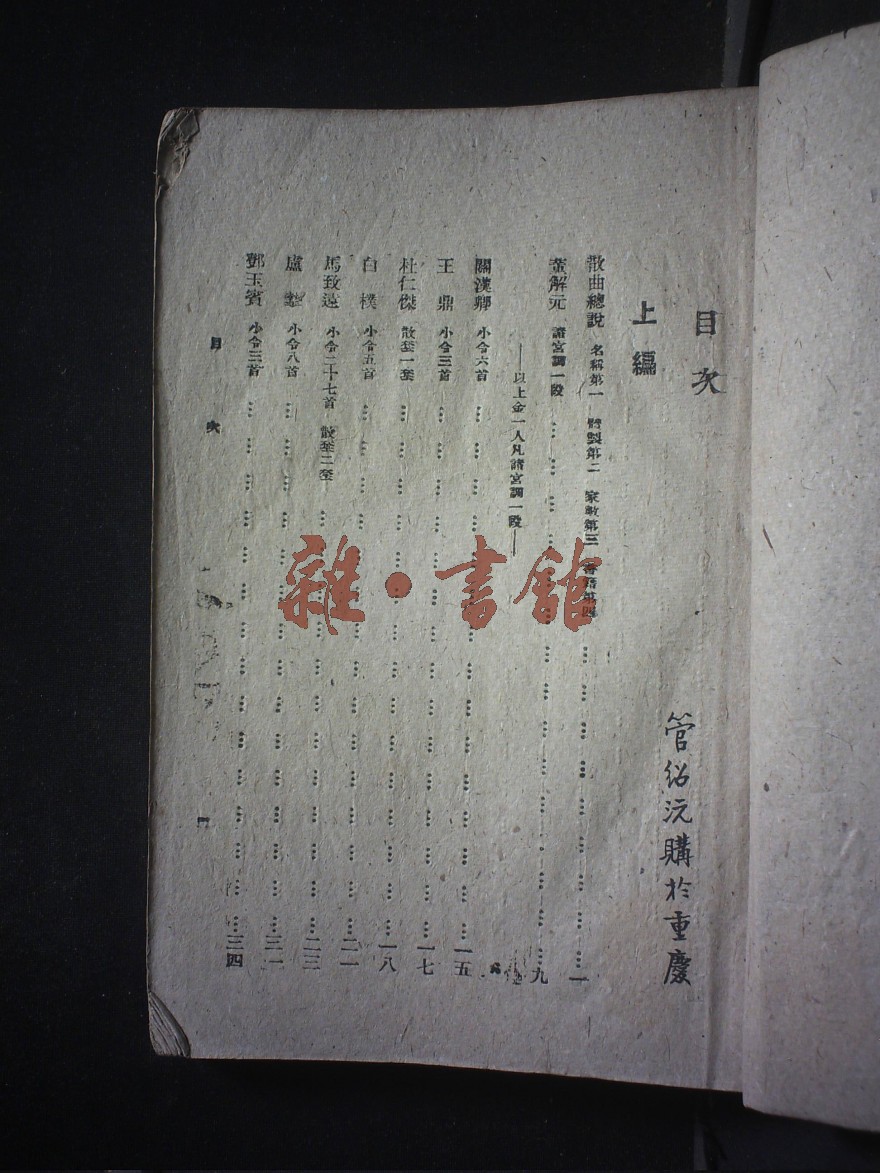 目次
管紹沅購於重慶
上編
散曲總說 名稱第一 體製第二 家數第三 書籍第四 ………一
董解元 諸宮調一段 ………九
——以上金一人凡諸宮調一段——
關漢卿 小令六首 ………一五
王鼎 小令三首 ………一七
杜仁傑 散套一套 ………一八
白樸 小令五首 ………二一
馬致遠 小令二十七首 散套二套 ………二三
盧摯 小令八首 ………三一
鄧玉賓 小令三首 ………三四
目次
雜·書館